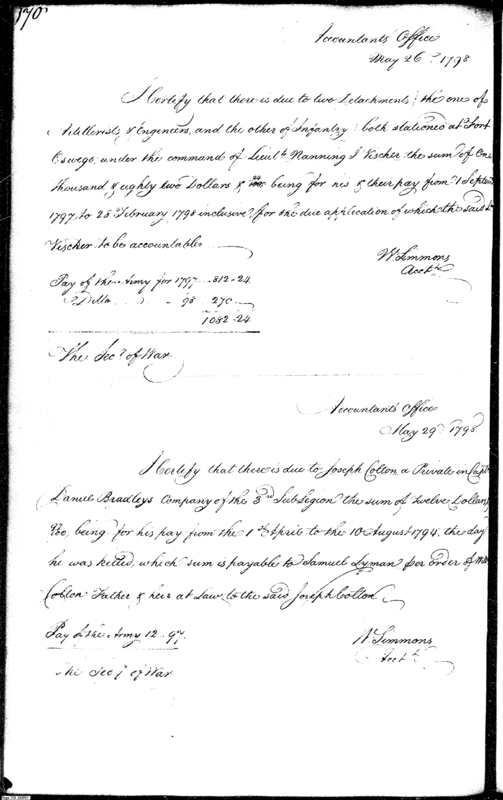 170
Accountants Office
May 26th 1798
I Certify that there is due to two Detachments (the one of
Artillerists & Engineers, and the other of Infantry) both stationed at Fort
Oswego, under the command of Lieut. Nanning J Vischer the sum of One
Thousand & eighty two Dollars & 24/100 being for his & their pay from 1 Septem
1797 to 28 February 1798 inclusive, for the due application of which the said Lt
Vischer to be accountable
W Simmons
Acctt
Pay of the Army for 1797 812-24
Ditto 98 270
1082-24
The Secy of War
Accountants Office
May 29th 1798
I Certify that there is due to Joseph Colton a Private in Capt
Daniel Bradleys Company of the 3rd Sub Legion the sum of twelve Dollars
97/100, being for his pay from the 1st April to the 10 August 1794, the day
he was killed, which sum is payable to Samuel Lyman per order of
Colton Father & heir at Law to the said Joseph Colton
Pay of the Army 12-97
W Simmons
Acctt
The Secy of War